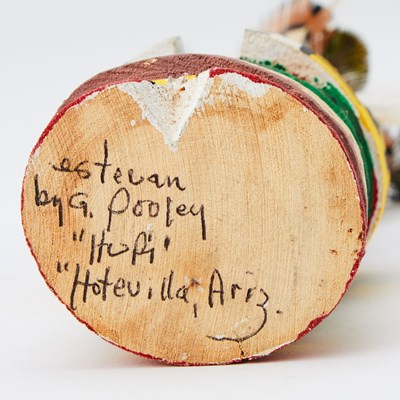 estevan
by G. Pooley
"Hopi"
"Hotevilla, Ariz.